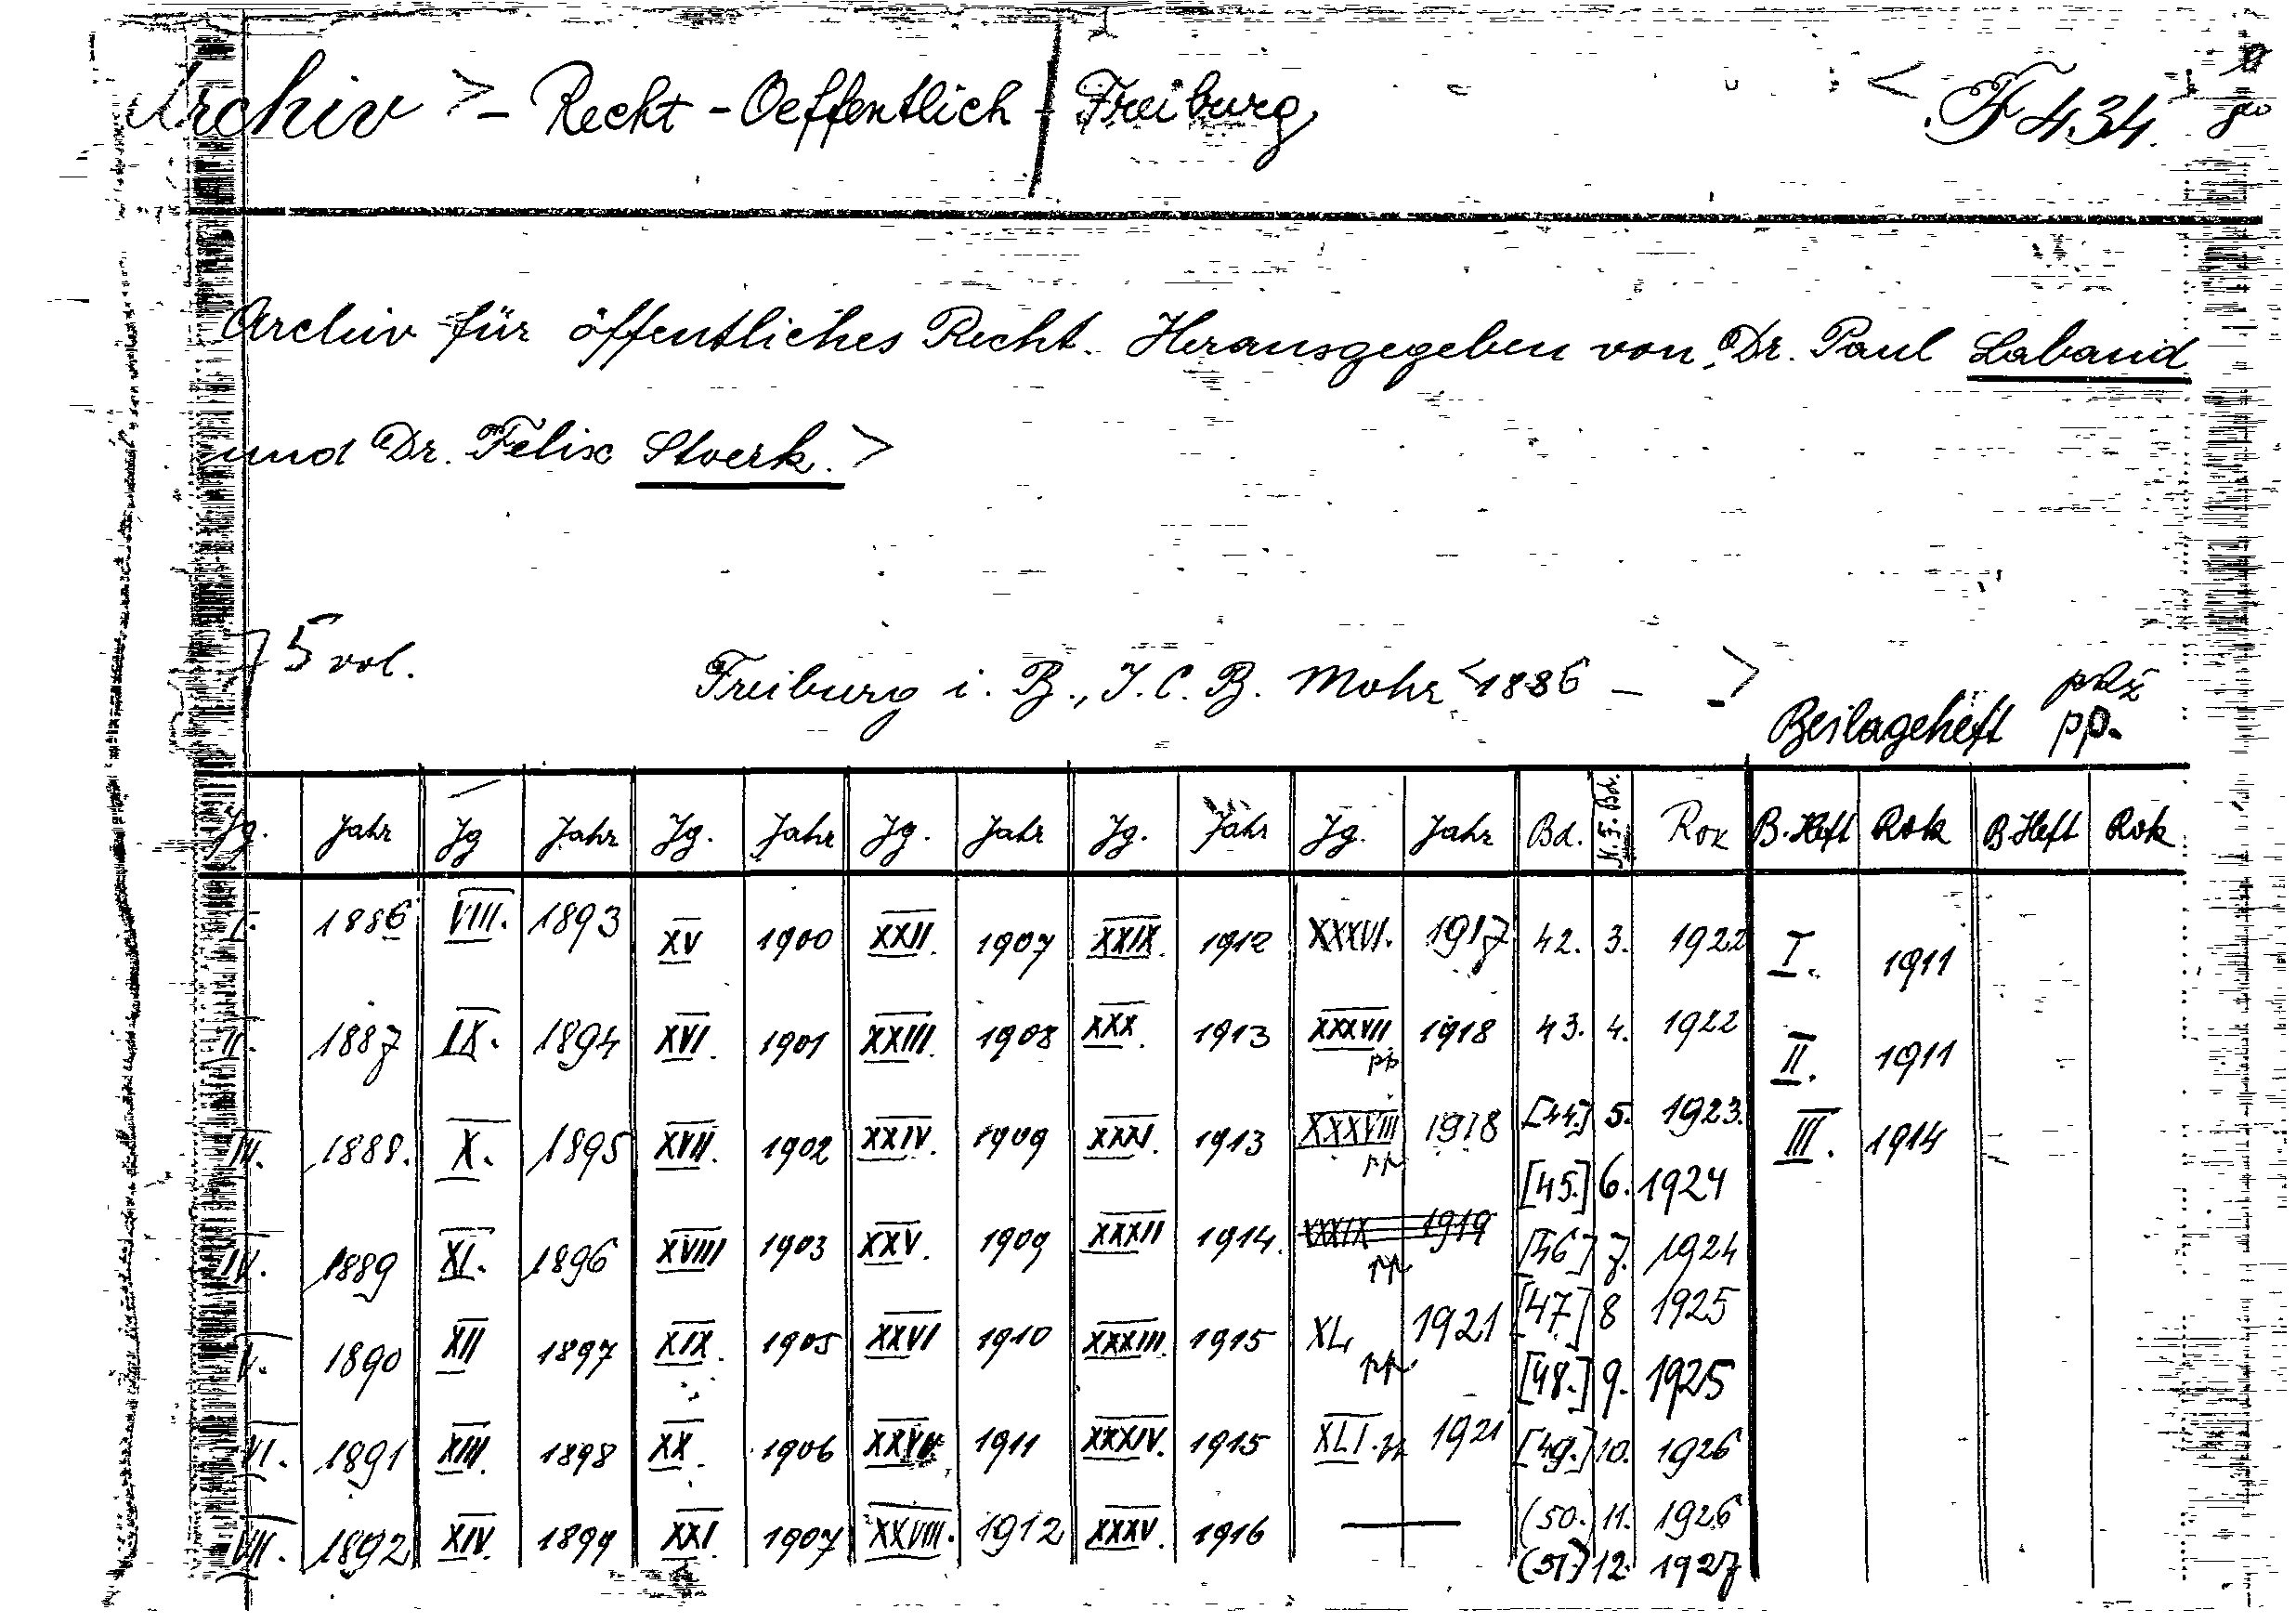 Archiv > - Recht - Oeffentlich - Freiburg < F 434.
Archiv für öffentliches Recht. Herausgegeben von Dr. Paul Laband
und Dr. Felix Stoerk. >
75 vol. Freiburg i. B., J. C. B. Mohr <1886 - - >
Beilageheft pp.
Jg. Jahr Jg Jahr Jg. Jahr Jg. Jahr Jg. Jahr Jg. Jahr Bd. N. F. Bd. Rok B. Heft Rok B Heft Rok
I. 1886 VIII. 1893 XV 1900 XXII. 1907 XXIX. 1912 XXXVI. 1917 42. 3. 1922 I. 1911
II. 1887 IX. 1894 XVI. 1901 XXIII. 1908 XXX. 1913 XXXVII. pp 1918 43. 4. 1922 II. 1911
III. 1888. X. 1895 XVII. 1902 XXIV. 1909 XXXI. 1913 XXXVIII pp 1918 [44.] 5. 1923. III. 1914
[45.] 6. 1924
IV. 1889 XI. 1896 XVIII 1903 XXV. 1909 XXXII 1914. XXXIX pp 1919 [46] 7. 1924
V. 1890 XII 1897 XIX. 1905 XXVI 1910 XXXIII. 1915 XL pp. 1921 [47.] 8 1925
[48.] 9. 1925
VI. 1891 XIII. 1898 XX. 1906 1911 XXXIV. 1915 XLI. 1921 [49.] 10. 1926
VII. 1892 XIV. 1899 XXI. 1907 XXVIII. 1912 XXXV. 1916 — (50.) 11. 1926
(51.) 12. 1927